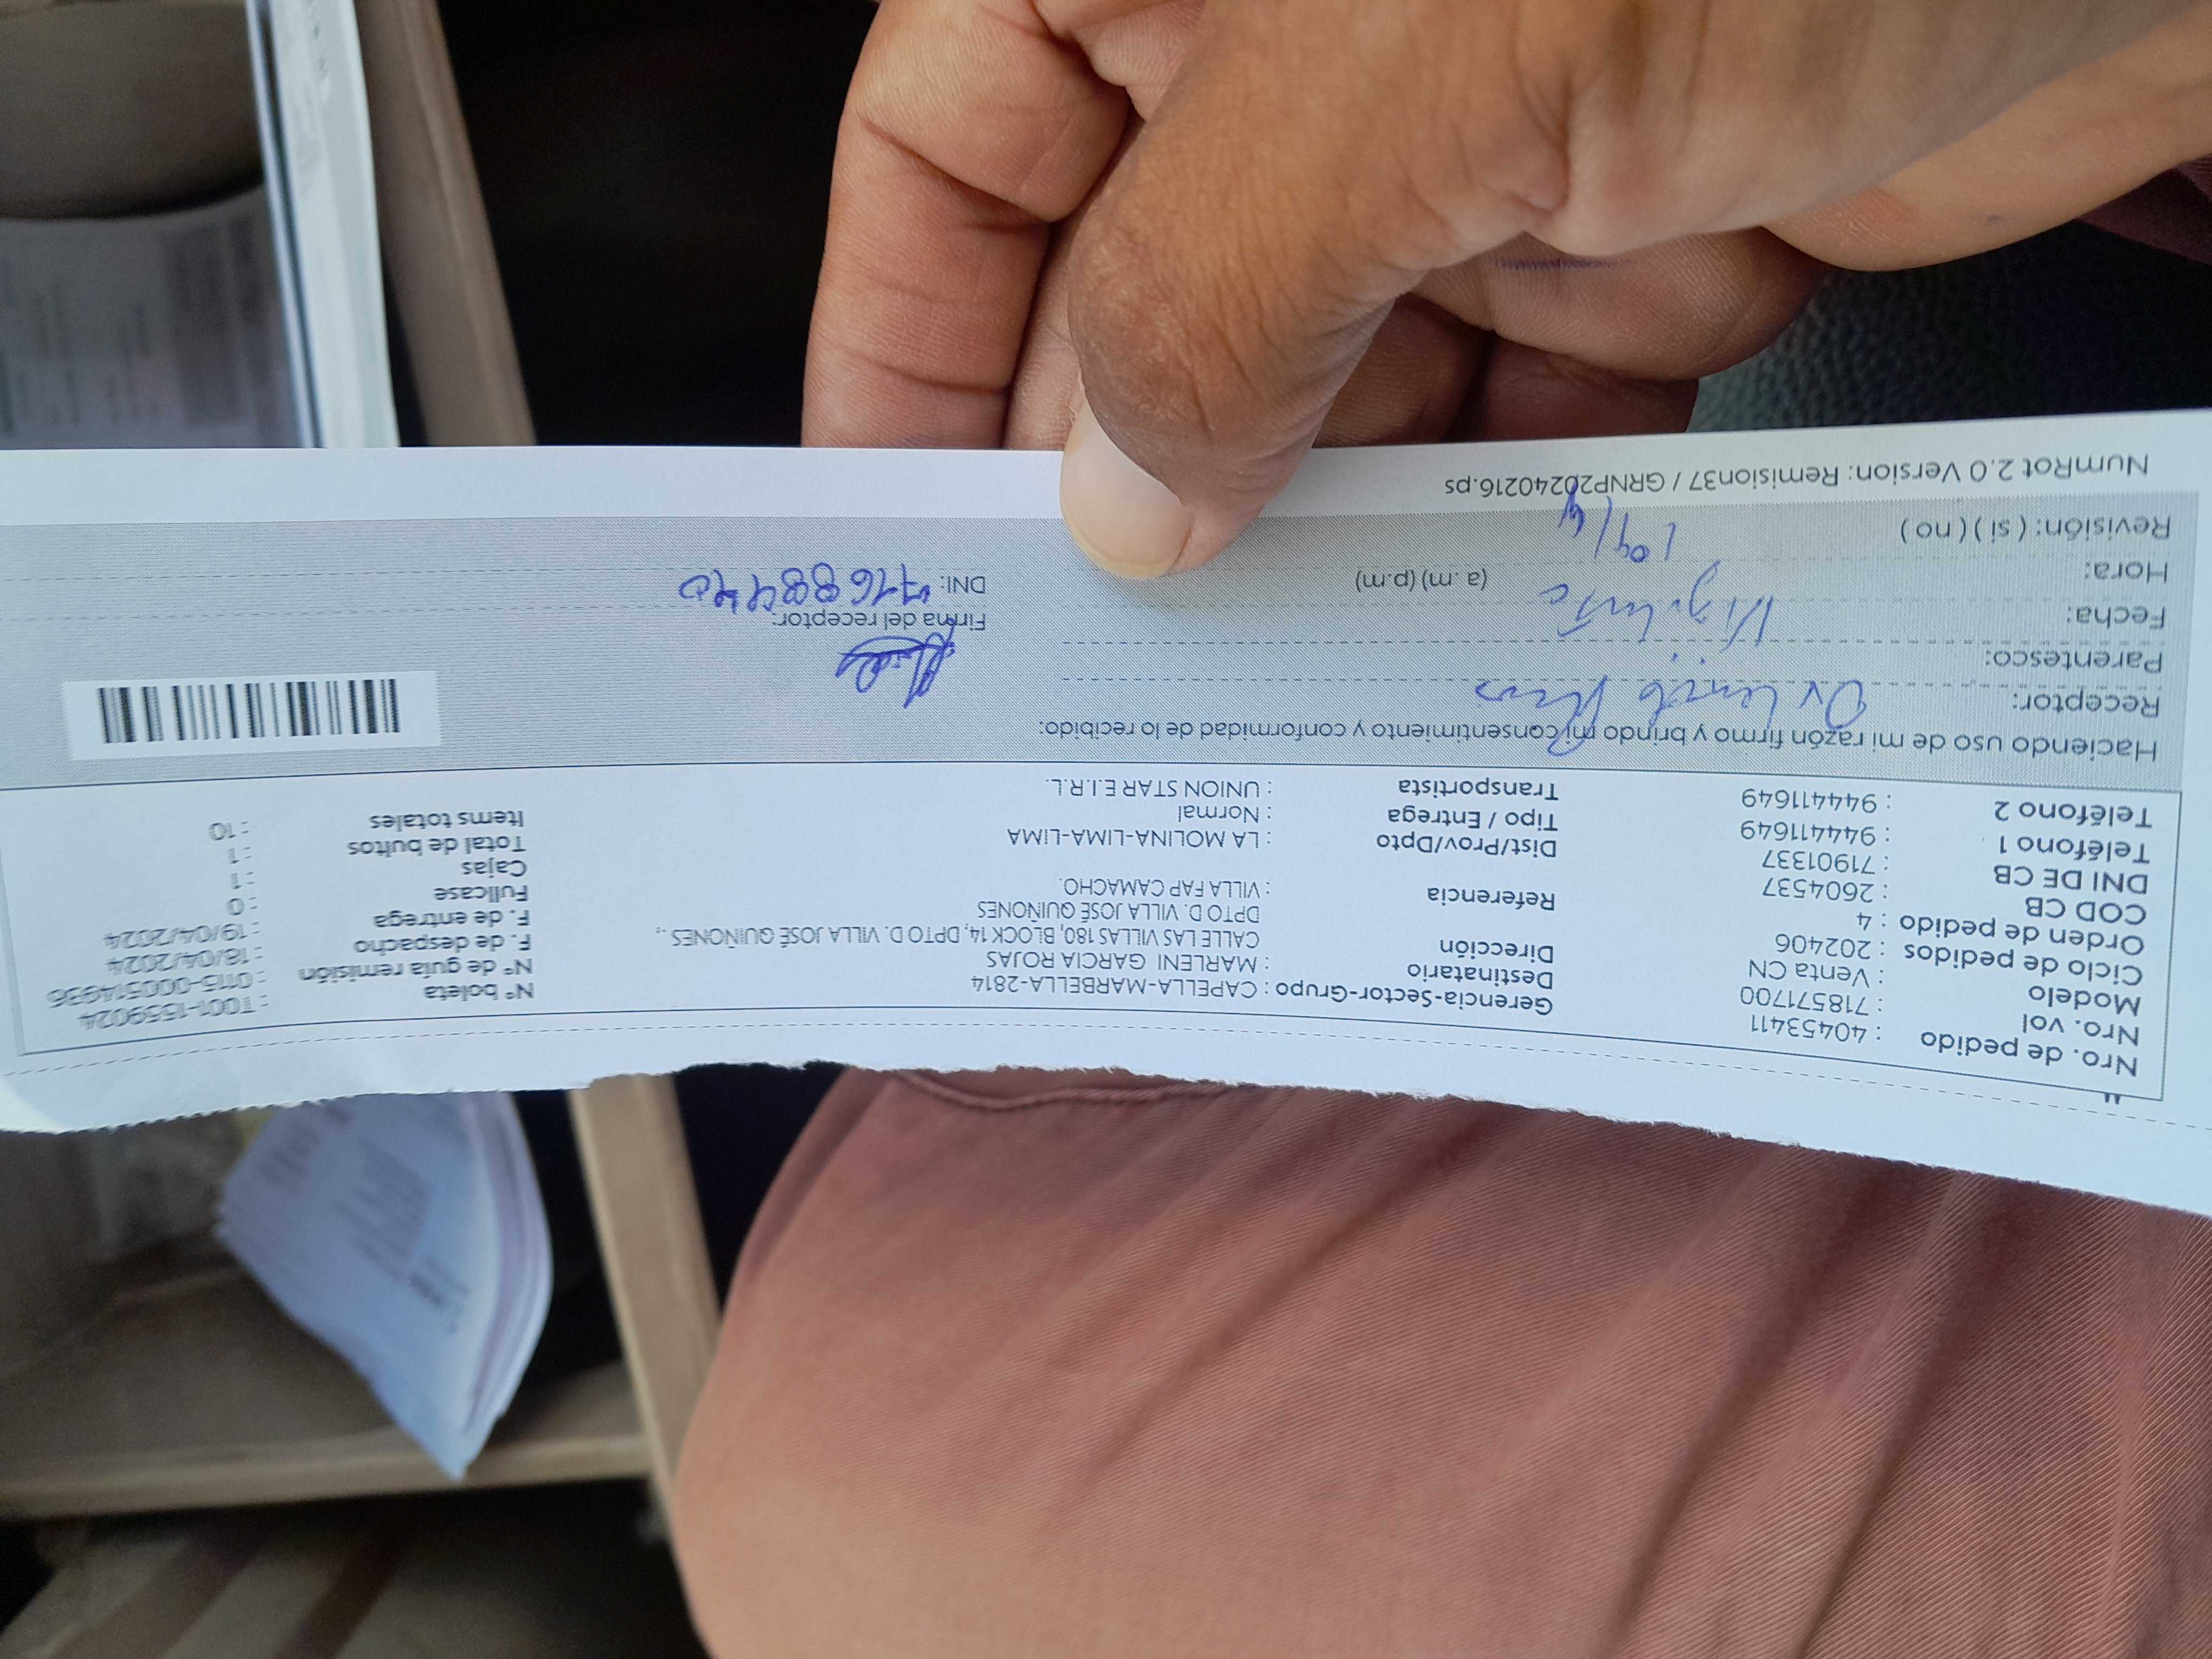 Nro. de pedido : 40453411
Nro. vol : 718571700
Modelo : Venta CN
Ciclo de pedidos : 202406
Orden de pedido : 4
COD CB : 2604537
DNI DE CB : 71901337
Teléfono 1 : 944411649
Teléfono 2 : 944411649
Gerencia-Sector-Grupo : CAPELLA-MARBELLA-2814
Destinatario : MARLENI GARCIA ROJAS
Dirección CALLE LAS VILLAS 180, BLOCK 14, DPTO D. VILLA JOSÉ QUIÑONES .,
DPTO D. VILLA JOSÉ QUIÑONES
Referencia : VILLA FAP CAMACHO.
Dist/Prov/Dpto : LA MOLINA-LIMA-LIMA
Tipo / Entrega : Normal
Transportista : UNION STAR E.I.R.L.
N° boleta : T001-1559024
N° de guía remisión : 0115-000514936
F. de despacho : 18/04/2024
F. de entrega : 19/04/2024
Fullcase : 0
Cajas : 1
Total de bultos : 1
Items totales : 10
Haciendo uso de mi razón firmo y brindo mi consentimiento y conformidad de lo recibido:
Receptor:
Parentesco: Vigilante
Fecha: 19/4
Hora: (a.m) (p.m)
Revisión: ( si ) ( no )
Firma del receptor:
DNI:
NumRot 2.0 Version: Remision37 / GRNP20240216.ps